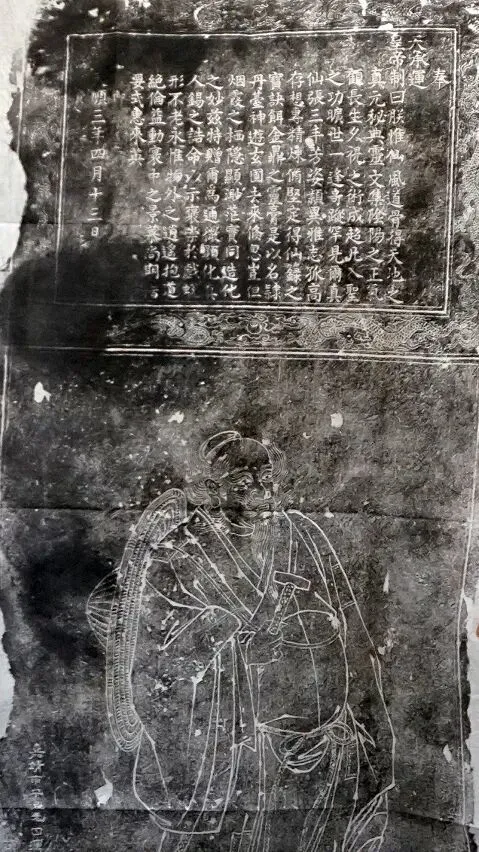 奉
天承運
皇帝制曰朕惟仙風道骨得天地之
真元秘典靈文集陰陽之正氣
顧長生久視之術成超凡入聖
之功曠世一逢奇蹤罕見爾真
仙張三丰芳姿穎異雅志孤高
存想專精煉修堅定得仙籙之
寶訣餌金鼎之靈膏是以名錄
丹臺神遊玄圃去來倏忽豈但
烟霞之栖隱顯渺茫實同造化
之妙茲特贈爾為通微顯化真
人錫之誥命以示褒崇於戲
形不老永惟物外之逍遙抱道
絕倫益動衷中之景慕尚
要式惠來英
順三年四月十三日
嘉靖